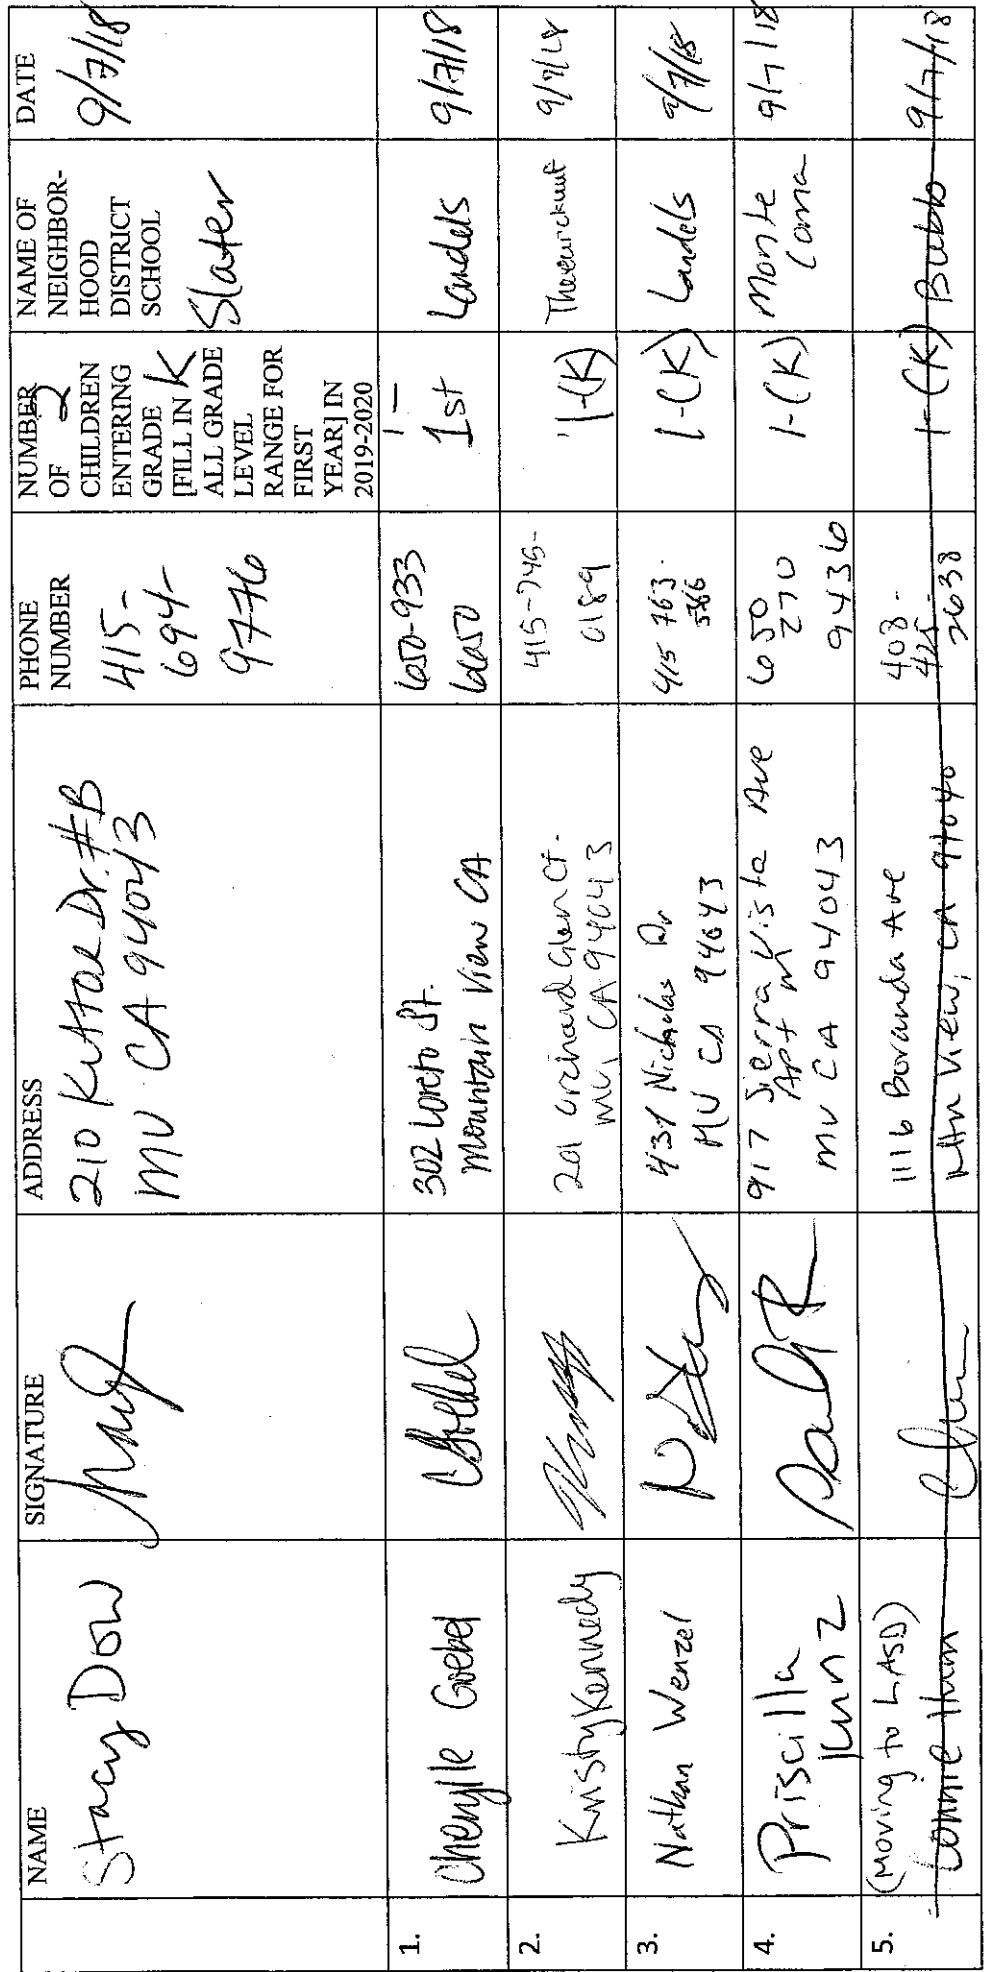 NAME
SIGNATURE
ADDRESS
PHONE
NUMBER
NUMBER
OF 2
CHILDREN
ENTERING
GRADE
[FILL IN K
ALL GRADE
LEVEL
RANGE FOR
FIRST
YEAR] IN
2019-2020
NAME OF
NEIGHBOR-
HOOD
DISTRICT
SCHOOL
DATE
Stacy Dow
210 Dr. #B
MV CA 94043
415-
694-
9776
Slater
9/7/18
1.
Cherylle Goebel
302 Loreto St.
Mountain View CA
650-933
6650
1-
1st
Landels
9/7/18
2.
Kristy Kennedy
201 Orchard Glen Ct.
MV, CA 94043
415-745-
0189
1-(K)
9/7/18
3.
Nathan Wenzel
431 Nicholas Dr
MV CA 94043
415 763-
5766
1-(K)
Landels
9/7/18
4.
Priscilla
Kunz
917 Sierra Vista Ave
Apt M
MV CA 94043
650
270
9436
1-(K)
Monte
Loma
9/7/18
5.
(Moving to LASD)
Connie Hum
1116 Boranda Ave
Mtn View, CA 94040
408-
425-
2638
1-(K)
Bubb
9/7/18